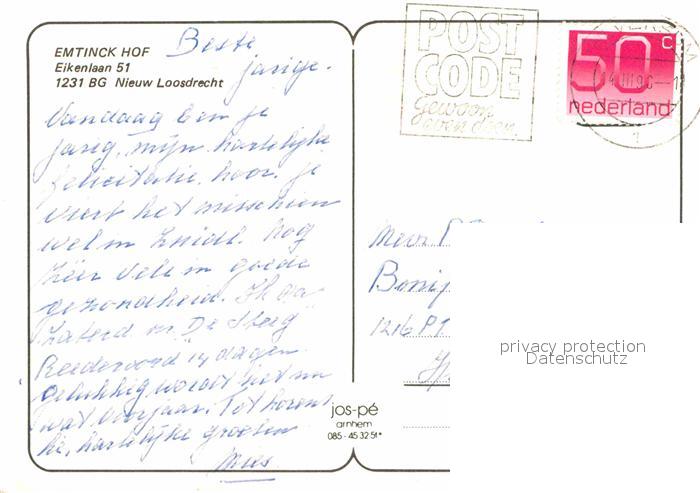 EMTINCK HOF
Eikenlaan 51
1231 BG Nieuw Loosdrecht
Beste
jarige.
Vandaag ben je
jarig, mijn hartelijke
felicitatie hoor. je
viert het misschien
wel in Zuidl. Nog
zéér vele in goede
gezondheid. Ik ga
Zaterd. nr. De Steeg
Reederoord 14 dagen
gelukkig wordt het nu
wat voorjaar. Tot horens
hé, hartelijke groeten
Mies
POST
CODE
gewoon
even doen.
50 c
nederland
Mevr
1216 PT
jos-pé
arnhem
085-453251*
privacy protection
Datenschutz